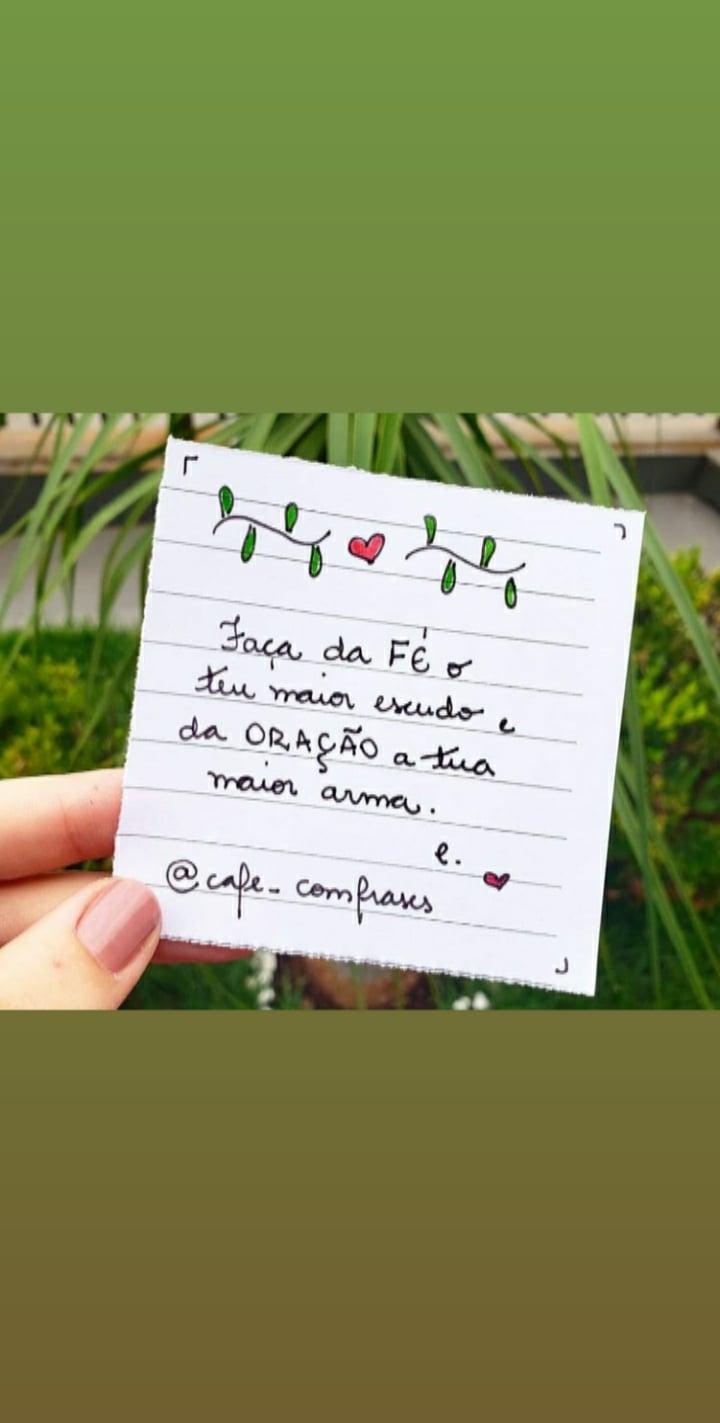 Faça da FÉ o
teu maior escudo e
da ORAÇÃO a tua
maior arma.
e.
@cafe_comfrases